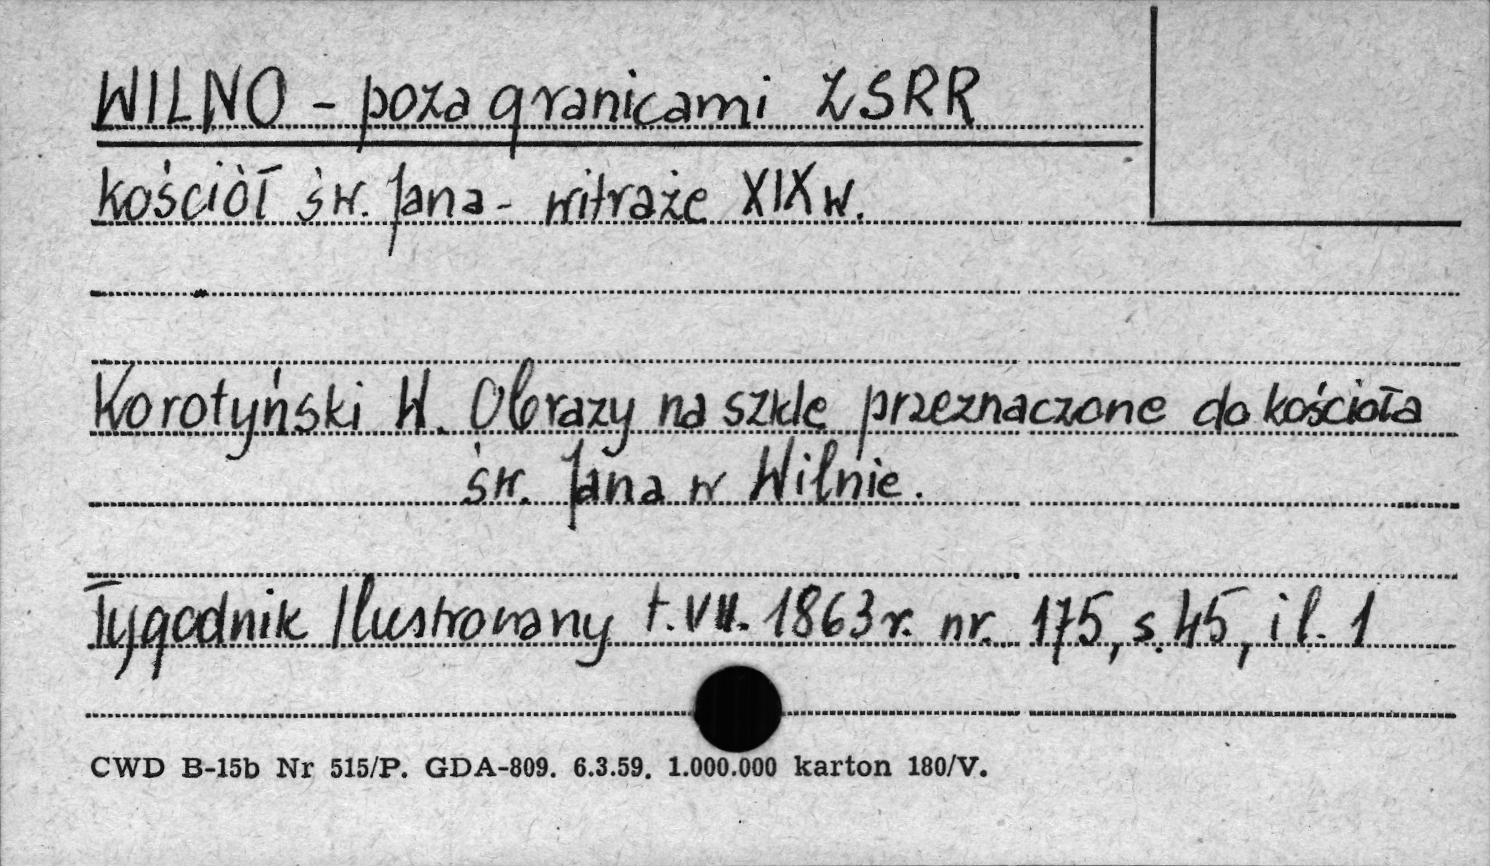 WILNO - poza granicami ZSRR
kościół św. Jana - witraże XIX w.
Korotyński W. Obrazy na szkle przeznaczone do kościoła
św. Jana w Wilnie.
Tygodnik Ilustrowany t. VII. 1863 r. nr. 175, s. 45, il. 1
CWD B-15b Nr 515/P. GDA-809. 6.3.59. 1.000.000 karton 180/V.